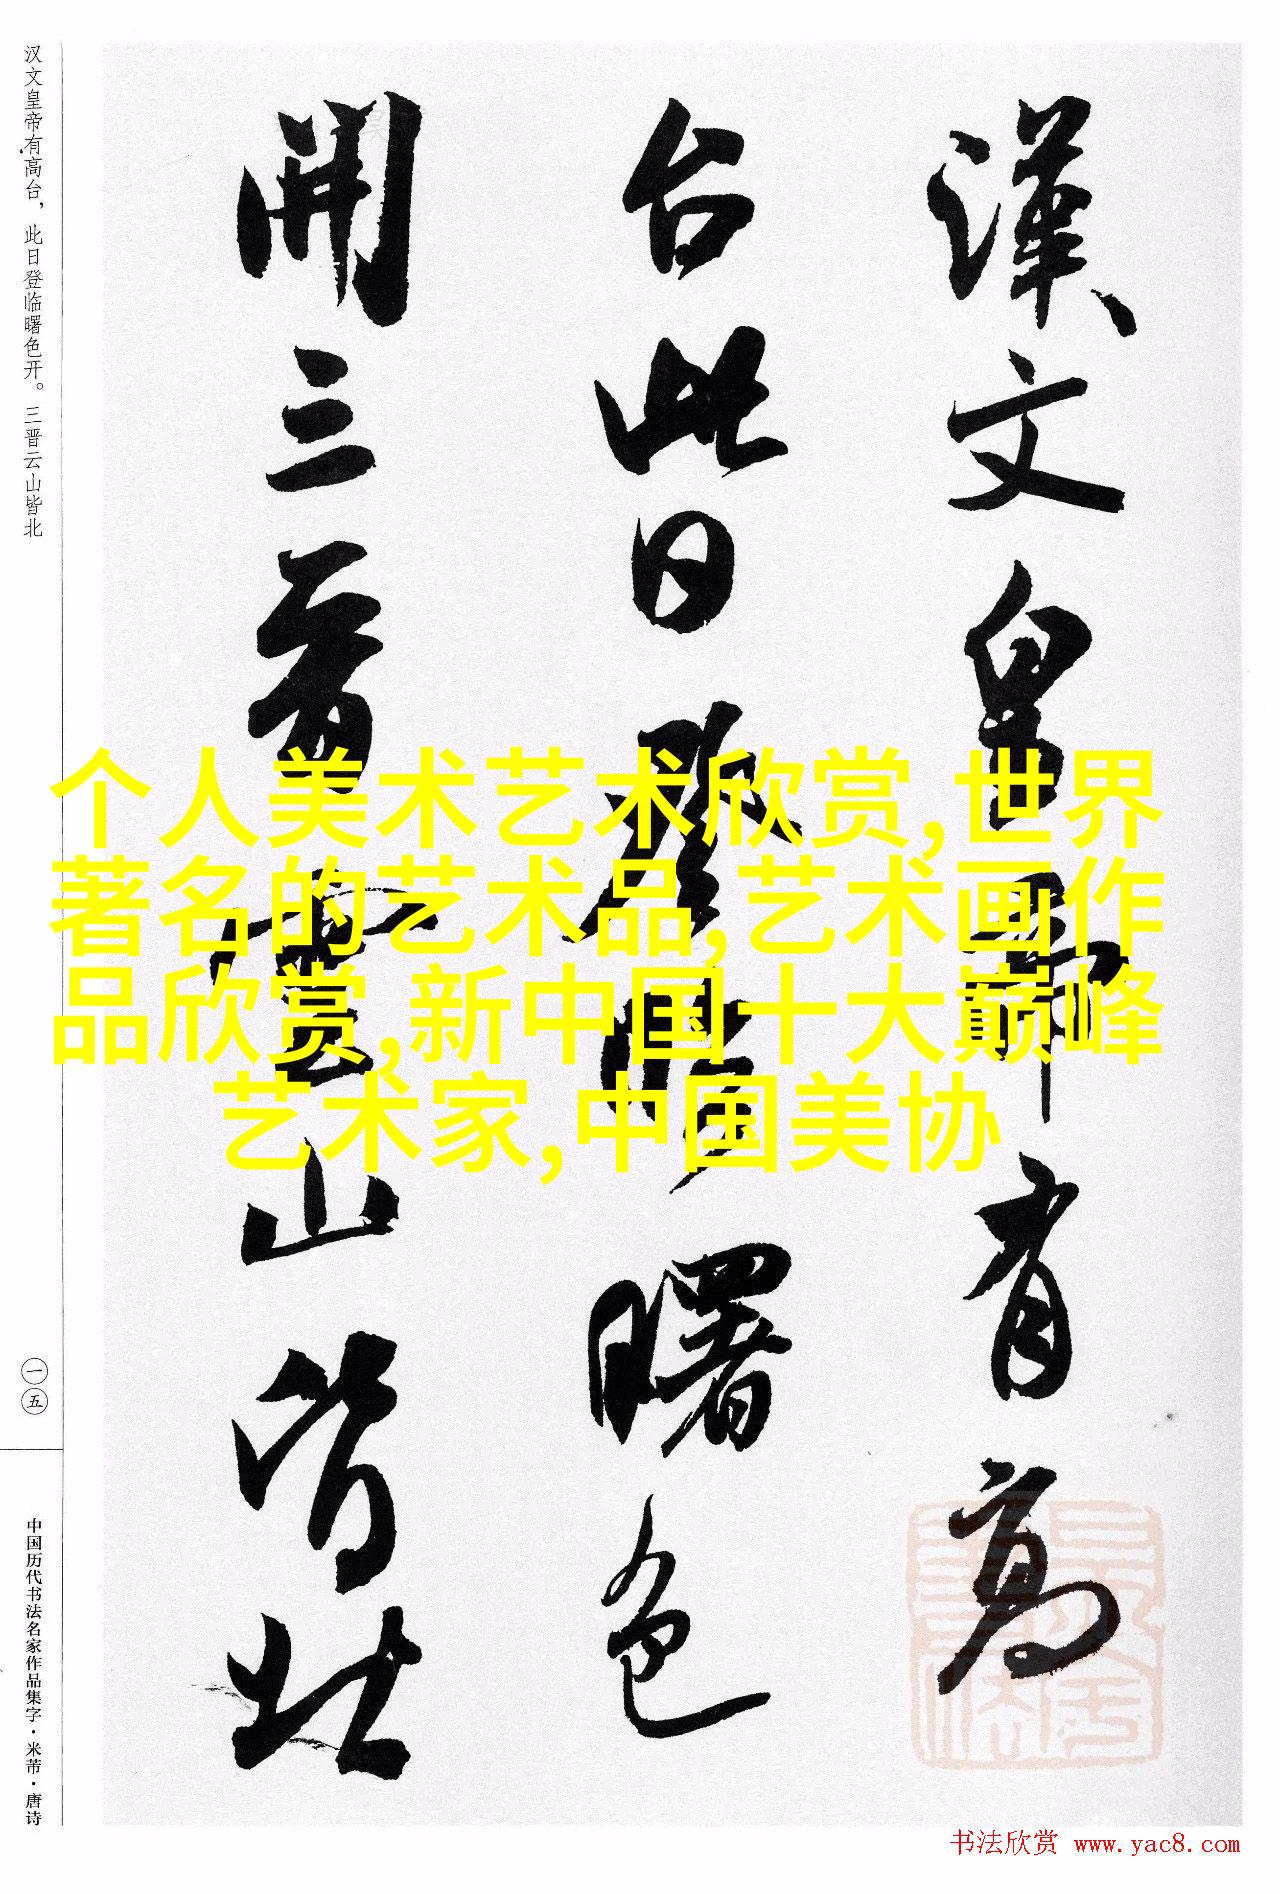 漢文皇帝有高
台此日登臨曙色
開三晉雲山皆北
汉文皇帝有高台，此日登临曙色开。三晋云山皆北
一五
中国历代书法名家作品集字·米芾·唐诗
个人美术艺术欣赏,世界
著名的艺术品,艺术画作
品欣赏,新中国十大巅峰
艺术家,中国美协
书法欣赏 www.yac8.com